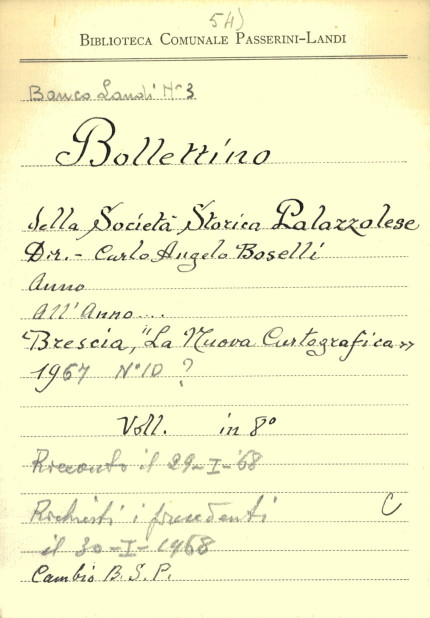 54)
BIBLIOTECA COMUNALE PASSERINI-LANDI
Banco Landi N° 3
Bollettino
della Società Storica Palazzolese
Dir. - Carlo Angelo Boselli
Anno
All'Anno....
Brescia, "La Nuova Cartografica"
1967 N° 10 ?
Voll. in 8°
Ricevuto il 29-I-'68
Richiesti i precedenti
C
il 30-I-1968
Cambio B.S.P.